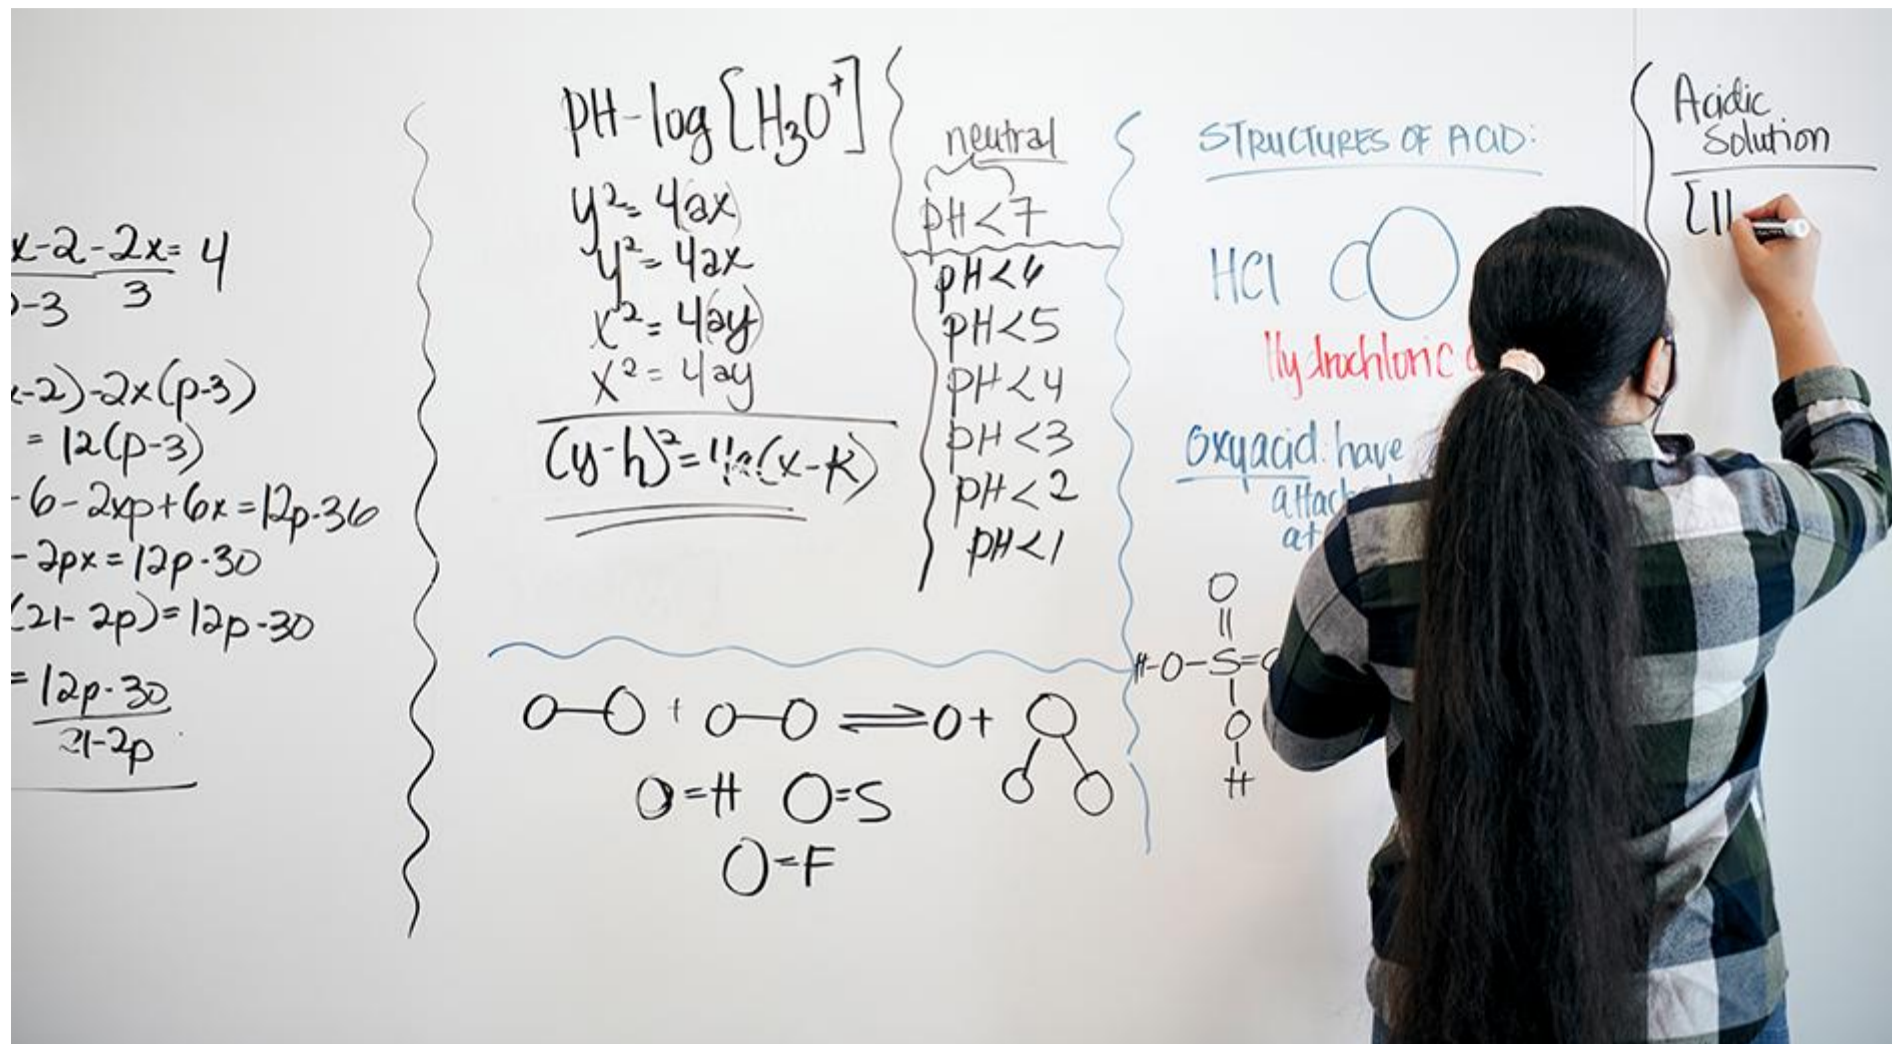 x-2-2x=4
-3 3
-2)-2x(p-3)
= 12(p-3)
-6-2xp+6x=12p-36
-2px=12p-30
(21-2p)=12p-30
= 12p-30
21-2p
pH-log[H₃O⁺]
y²=4(ax)
y²=4ax
x²=4(ay)
x²=4ay
(y-h)²=4a(x-k)
neutral
pH<7
pH<6
pH<5
pH<4
pH<3
pH<2
pH<1
O-O + O-O ⇌ O+ O
O O
O=H O=S
O=F
STRUCTURES OF ACID:
HCl
Hydrochloric
Oxyacid have
at
O
||
H-O-S=
|
O
|
H
Acidic
Solution
[H